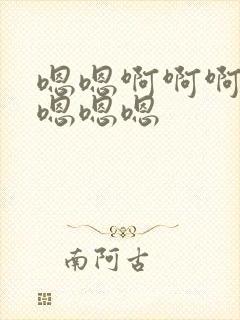 嗯嗯啊啊啊
嗯嗯嗯
南阿古